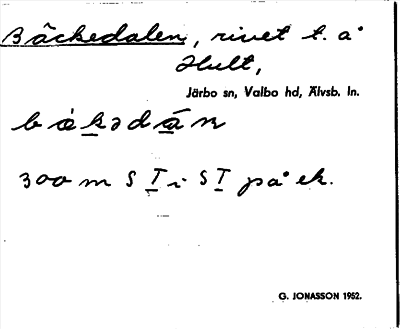 Bäckedalen, rivet t. å
Hult,
Järbo sn, Valbo hd, Älvsb. ln.
bàkədán
300 m S I i SI på ek.
G. JONASSON 1952.